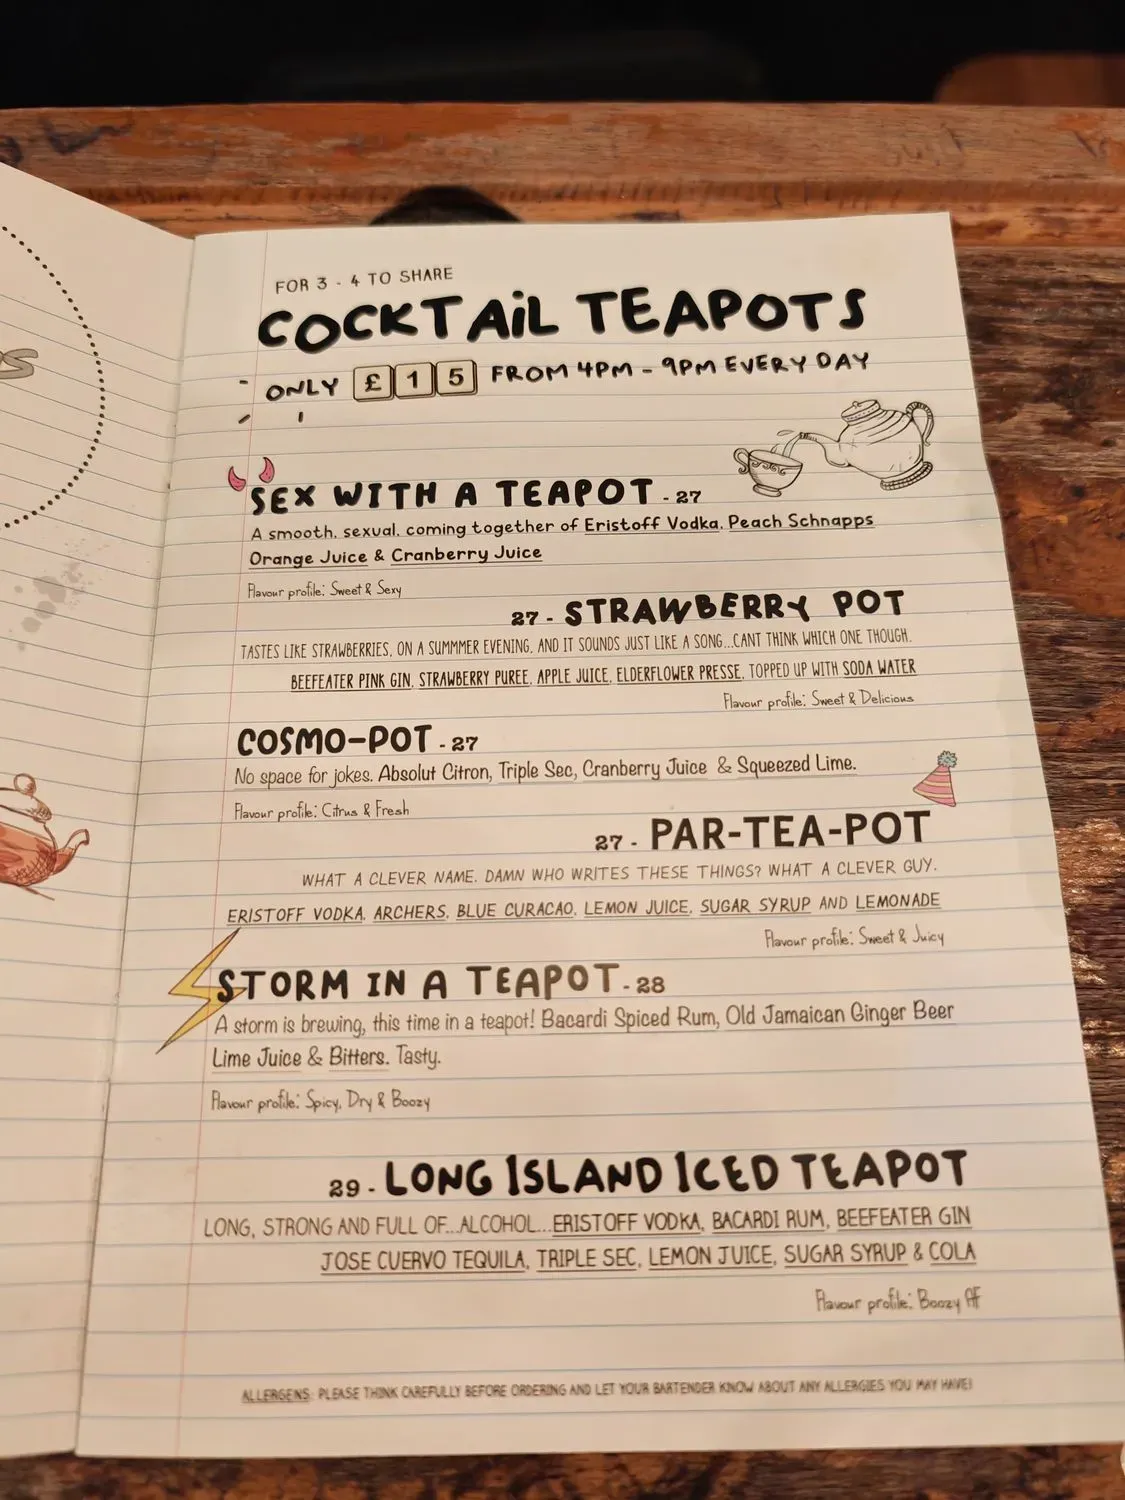 FOR 3 - 4 TO SHARE
COCKTAIL TEAPOTS
ONLY £15 FROM 4PM - 9PM EVERY DAY
SEX WITH A TEAPOT - 27
A smooth, sexual, coming together of Eristoff Vodka, Peach Schnapps
Orange Juice & Cranberry Juice
Flavour profile: Sweet & Sexy
27 - STRAWBERRY POT
TASTES LIKE STRAWBERRIES, ON A SUMMMER EVENING, AND IT SOUNDS JUST LIKE A SONG...CANT THINK WHICH ONE THOUGH.
BEEFEATER PINK GIN, STRAWBERRY PUREE, APPLE JUICE, ELDERFLOWER PRESSE, TOPPED UP WITH SODA WATER
Flavour profile: Sweet & Delicious
COSMO-POT - 27
No space for jokes. Absolut Citron, Triple Sec, Cranberry Juice & Squeezed Lime.
Flavour profile: Citrus & Fresh
27 - PAR-TEA-POT
WHAT A CLEVER NAME. DAMN WHO WRITES THESE THINGS? WHAT A CLEVER GUY.
ERISTOFF VODKA, ARCHERS, BLUE CURACAO, LEMON JUICE, SUGAR SYRUP AND LEMONADE
Flavour profile: Sweet & Juicy
STORM IN A TEAPOT - 28
A storm is brewing, this time in a teapot! Bacardi Spiced Rum, Old Jamaican Ginger Beer
Lime Juice & Bitters. Tasty.
Flavour profile: Spicy, Dry & Boozy
29 - LONG ISLAND ICED TEAPOT
LONG, STRONG AND FULL OF...ALCOHOL...ERISTOFF VODKA, BACARDI RUM, BEEFEATER GIN
JOSE CUERVO TEQUILA, TRIPLE SEC, LEMON JUICE, SUGAR SYRUP & COLA
Flavour profile: Boozy AF
ALLERGENS: PLEASE THINK CAREFULLY BEFORE ORDERING AND LET YOUR BARTENDER KNOW ABOUT ANY ALLERGIES YOU MAY HAVE!